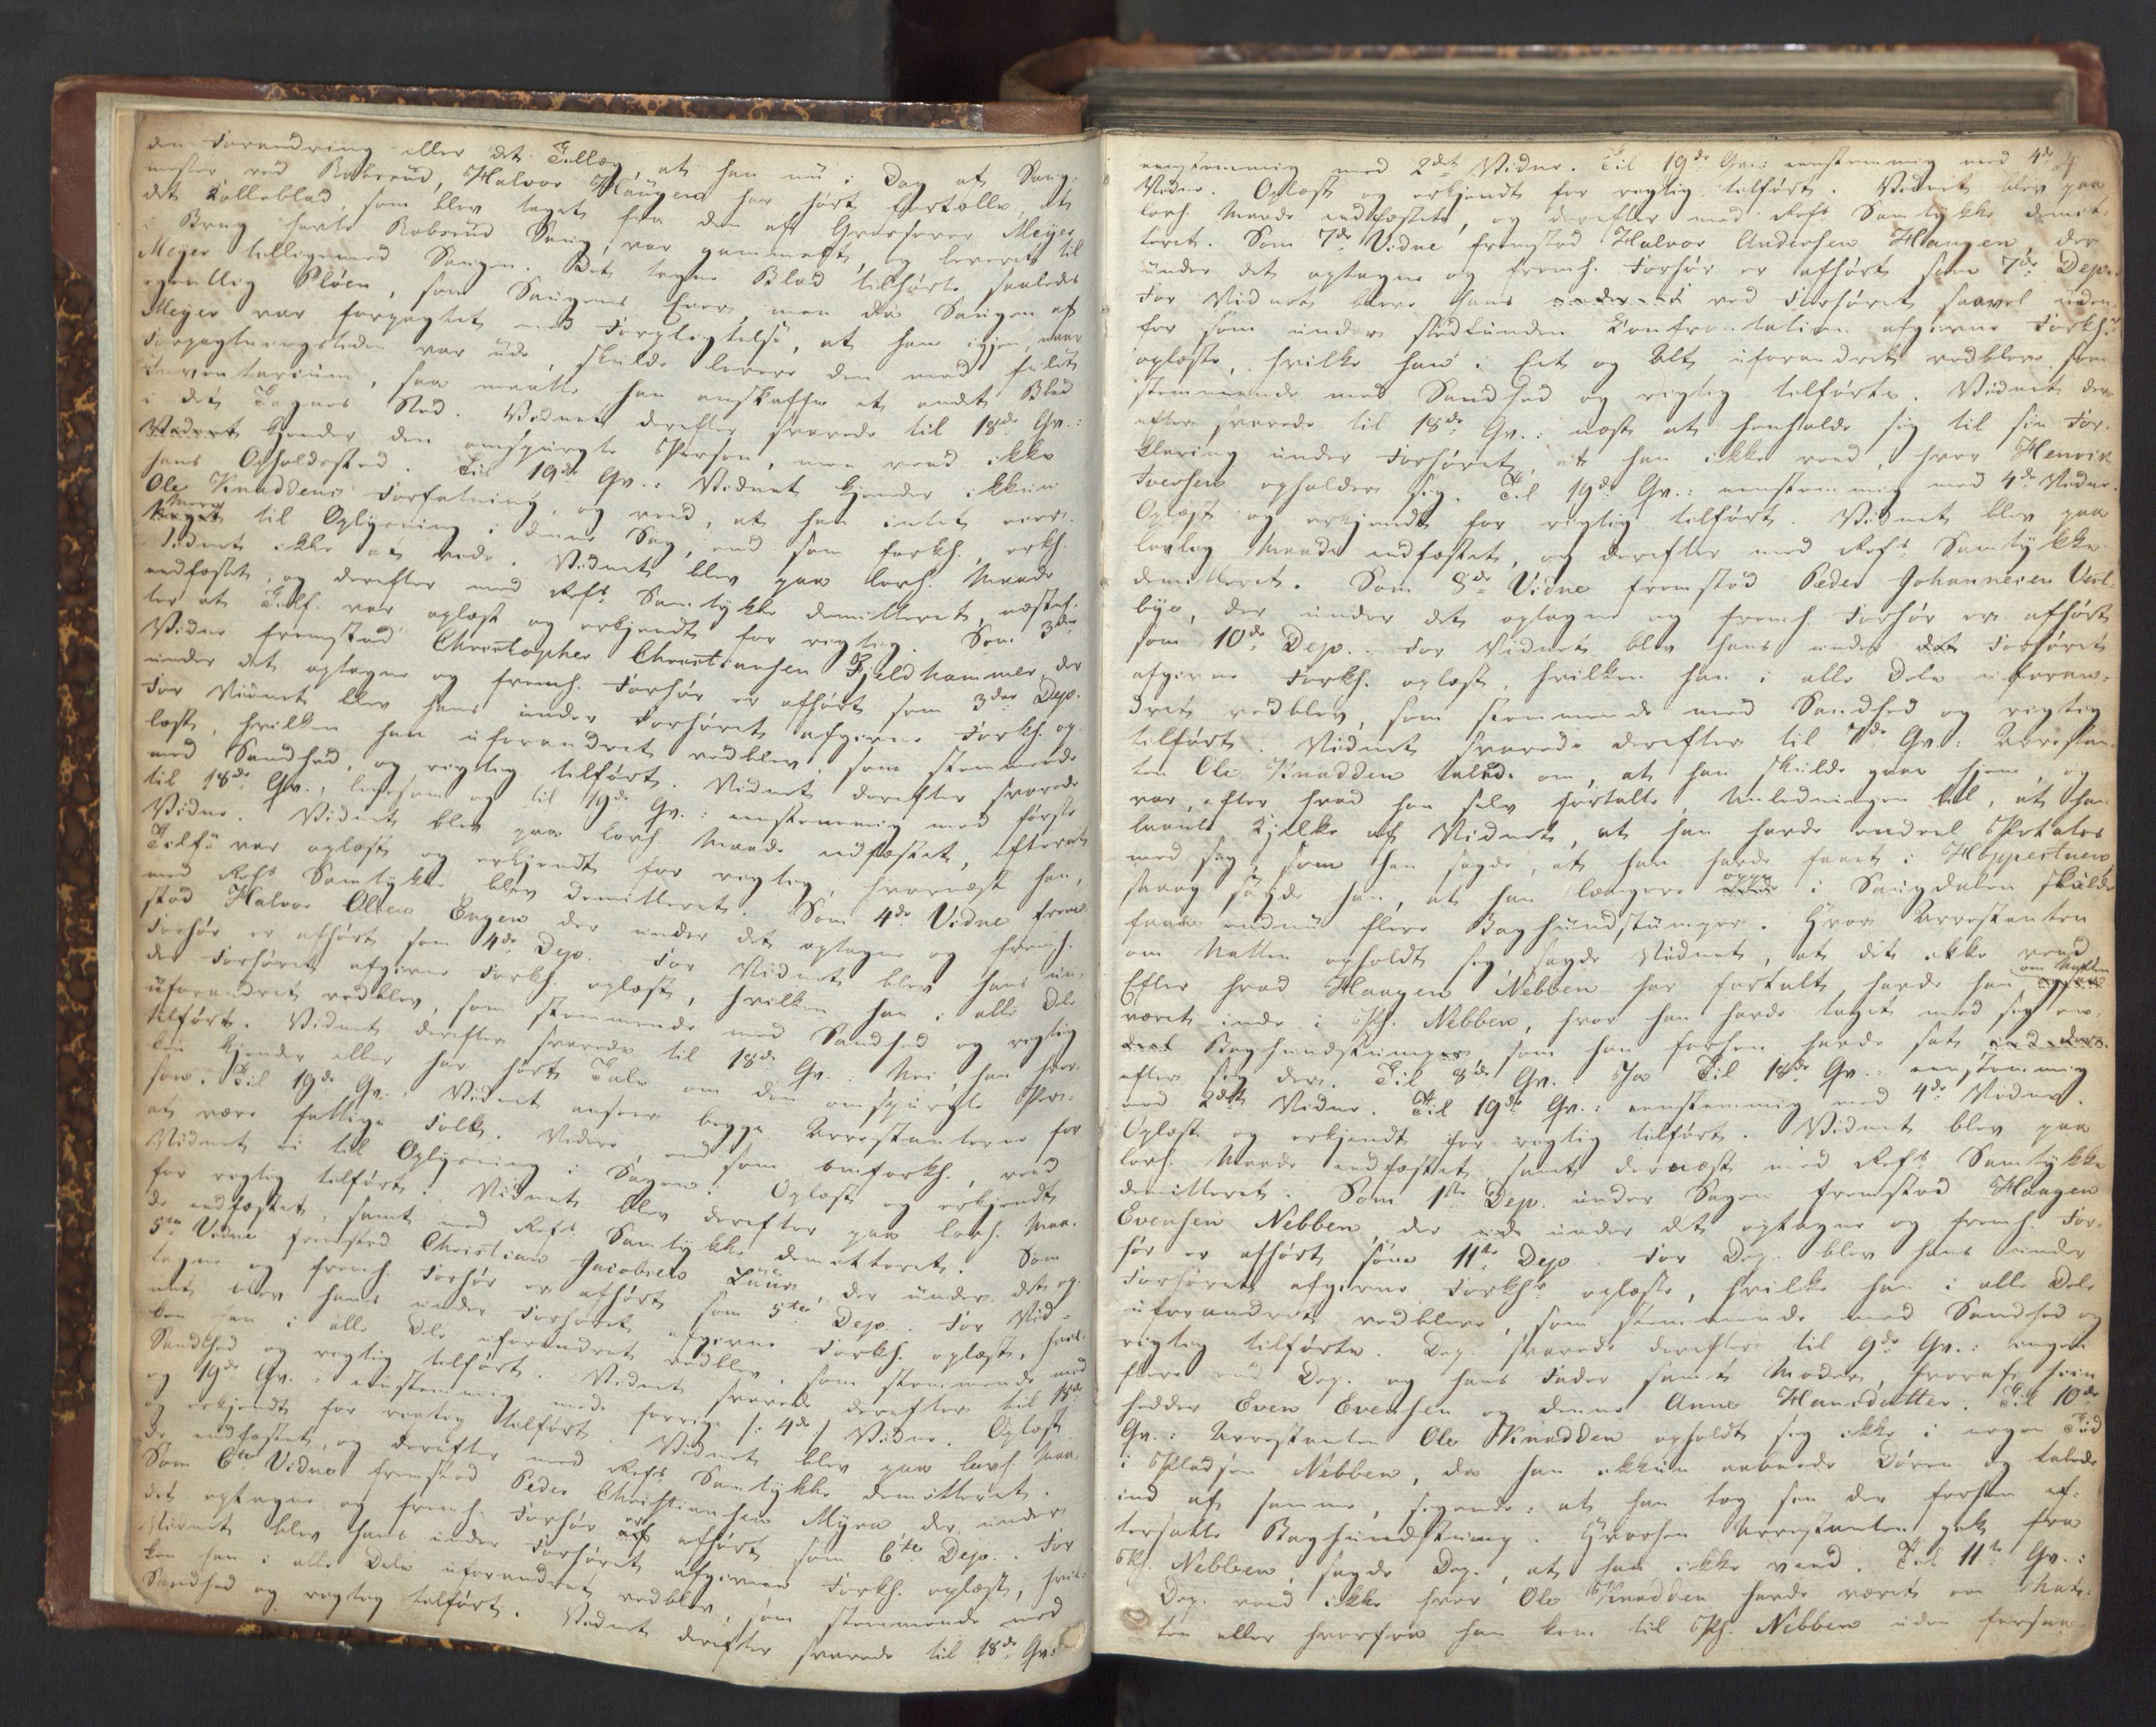 den Forandring eller det Tillæg, at han nu i Dag af Saug-
mester ved Robsrud, Halvor Haugen har hørt fortælle, at
det Rolleblad, som blev taget fra den af Grosserer Meyer
i Brug havte Robsrud Saug, var gammelt, og leveret til
Meyer tilligemed Saugen. Det tagne Blad tilhørte saaledes
egentlig Pløen, som Saugens Eier, men da Saugen af
Meyer var forpagtet med Forpligtelse, at han igjen, naar
Forpagtningstiden var ude, skulde levere den med fuldt
Inventarium, saa maatte han anskaffe et andet Blad
i det Tagnes Sted. Vidnet derefter svarede til 18de Qv.:
Vidnet kjender den omspurgte Person, men veed ikke
hans Opholdssted. Til 19de Qv.: Vidnet kjender ikkun
Ole Knaddens Forfatning, og veed, at han intet eier.
Mere til Oplysning i denne Sag, end som forkl., erkl.
Vidnet ikke at vide. Vidnet blev paa lovl. Maade
edfæstet, og derefter med Refts Samtykke demitteret, næstef-
ter at Tilf. var oplæst og erkjendt for rigtig. Som 3die
Vidne fremstod Christopher Christiansen Fjeldhammer, der
under det optagne og fremh. Forhør er afhørt som 3die Dep.
For Vidnet blev hans under Forhøret afgivne Forkl. op-
læst, hvilken han uforandret vedblev, som stemmende
med Sandhed, og rigtig tilført. Vidnet derefter svarede
til 18de Qv., ligesom og til 19de Qv.: eenstemmig med første
Vidne. Vidnet blev paa lovl. Maade edfæstet, efterat
Tilf. var oplæst og erkjendt for rigtig, hvornæst han,
med Refts Samtykke blev demitteret. Som 4de Vidne frem-
stod Halvor Olsen Engen der under det optagne og fremh.
Forhør er afhørt som 4de Dep. For Vidnet blev hans un-
der Forhøret afgivne Forkl. oplæst, hvilken han i alle Dele
uforandret vedblev, som stemmende med Sandhed og rigtig
tilført. Vidnet derefter svarede til 18de Qv.: Nei, han hver-
ken kjender eller har hørt Tale om den omspurgte Per-
son. Til 19de Qv.: Vidnet anseer begge Arrestanterne for
at være fattige Folk. Videre, end som omforkl., veed
Vidnet ei til Oplysning i Sagen. Oplæst og erkjendt
for rigtig tilført. Vidnet blev derefter paa lovl. Maa-
de edfæstet, samt med Refts Samtykke demitteret. Som
5te Vidne fremstod Christian Jacobsen Luur, der under det op-
tagne og fremh. Forhør er afhørt som 5te Dep. For Vid-
net blev hans under Forhøret afgivne Forkl. oplæst, hvil-
ken han i alle Dele uforandret vedblev, som stemmende med
Sandhed og rigtig tilført. Vidnet svarede derefter til 18de
og 19de Qv.: eenstemmig med forrige /: 4de :/ Vidne. Oplæst
og erkjendt for rigtig tilført. Vidnet blev paa lovl. Maa-
de edfæstet, og derefter med Refts Samtykke demitteret.
Som 6te Vidne fremstod Peder Christiansen Myra, der under
det optagne og fremh. Forhør er afhørt som 6te Dep. For
Vidnet blev hans under Forhøret afgivne Forkl. oplæst, hvil-
ken han i alle Dele uforandret vedblev, som stemmende med
Sandhed og rigtig tilført. Vidnet derefter svarede til 18de Qv:
4
eenstemmig med 2det Vidne. Til 19de Qv.: eenstemmig med 4de
Vidne. Oplæst og erkjendt for rigtig tilført. Vidnet blev paa
lovl. Maade edfæstet, og derefter med Refts Samtykke demit-
teret. Som 7de Vidne fremstod Halvor Andersen Haugen, der
under det optagne og fremh. Forhør er afhørt som 7de Dep.
For Vidnet blev hans ved Forhøret saavel uden-
for som under stedfunden Konfrontation afgivne Forkl.
oplæste, hvilke han i Eet og Alt uforandret vedblev som
stemmende med Sandhed og rigtig tilførte. Vidnet der-
efter svarede til 18de Qv.: næst at henholde sig til sin For-
klaring under Forhøret, at han ikke veed, hvor Henrik
Iversen opholder sig. Til 19de Qv.: eenstemmig med 4de Vidne.
Oplæst og erkjendt for rigtig tilført. Vidnet blev paa
lovlig Maade edfæstet, og derefter med Refts Samtykke
demitteret. Som 8de Vidne fremstod Peder Johannesen Vest-
bye, der under det optagne og fremh. Forhør er afhørt
som 10de Dep. For Vidnet blev hans under Forhøret
afgivne Forkl. oplæst, hvilken han i alle Dele uforan-
dret vedblev, som stemmende med Sandhed og rigtig
tilført. Vidnet svarede derefter til 7de Qv: Arrestan-
ten Ole Knadden talede om, at han skulde gaae hjem, og
var, efter hvad han selv fortalte, Anledningen til, at han
laante Kjelke af Vidnet, at han havde endeel Potatos
med sig, som han sagde, at han havde faaet i Hoppestuen,
saaog sagde han, at han længere oppe i Saugdalen skulde
faae endnu flere Baghundstumper. Hvor Arrestanten
om Natten opholdt sig sagde Vidnet, at det ikke veed.
Efter hvad Haagen Nebben har fortalt, havde han om Natten
været inde i Pl. Nebben, hvor han havde taget med sig en-
deel Baghundstumper som han forhen havde sat
efter sig der. Til 8de Qv.: Ja Til 18de Qv.: eenstemmig
med 2det Vidne. Til 19de Qv.: eenstemmig med 4de Vidne.
Oplæst og erkjendt for rigtig tilført. Vidnet blev paa
lovl. Maade edfæstet, samt dernæst med Refts Samtykke
demitteret. Som 1ste Dep. under Sagen fremstod Haagen
Evensen Nebben, der under det optagne og fremh. For-
hør er afhørt som 11te Dep. For Dep. blev hans under
Forhøret afgivne Forkl. oplæste, hvilke han i alle Dele
uforandret vedblev, som stemmende med Sandhed og
rigtig tilførte. Dep. svarede derefter til 9de Qv.: ingen
flere end Dep. og hans Fader samt Moder, hvoraf hiin
hedder Even Evensen og denne Anne Hansdatter. Til 10de
Qv.: Arrestanten Ole Knadden opholdt sig ikke i nogen Tid
i Pladsen Nebben, da han ikkun aabnede Døren og talede
ind af samme, sigende: at han tog sin der forhen ef-
tersatte Baghundstump. Hvorhen Arrestanten gik fra
Pl. Nebben, sagde Dep., at han ikke veed. Til 11te Qv.:
Dep. veed ikke hvor Ole Knadden havde været om Nat-
ten eller hvorfra han kom til Pl. Nebben uden forsaa-